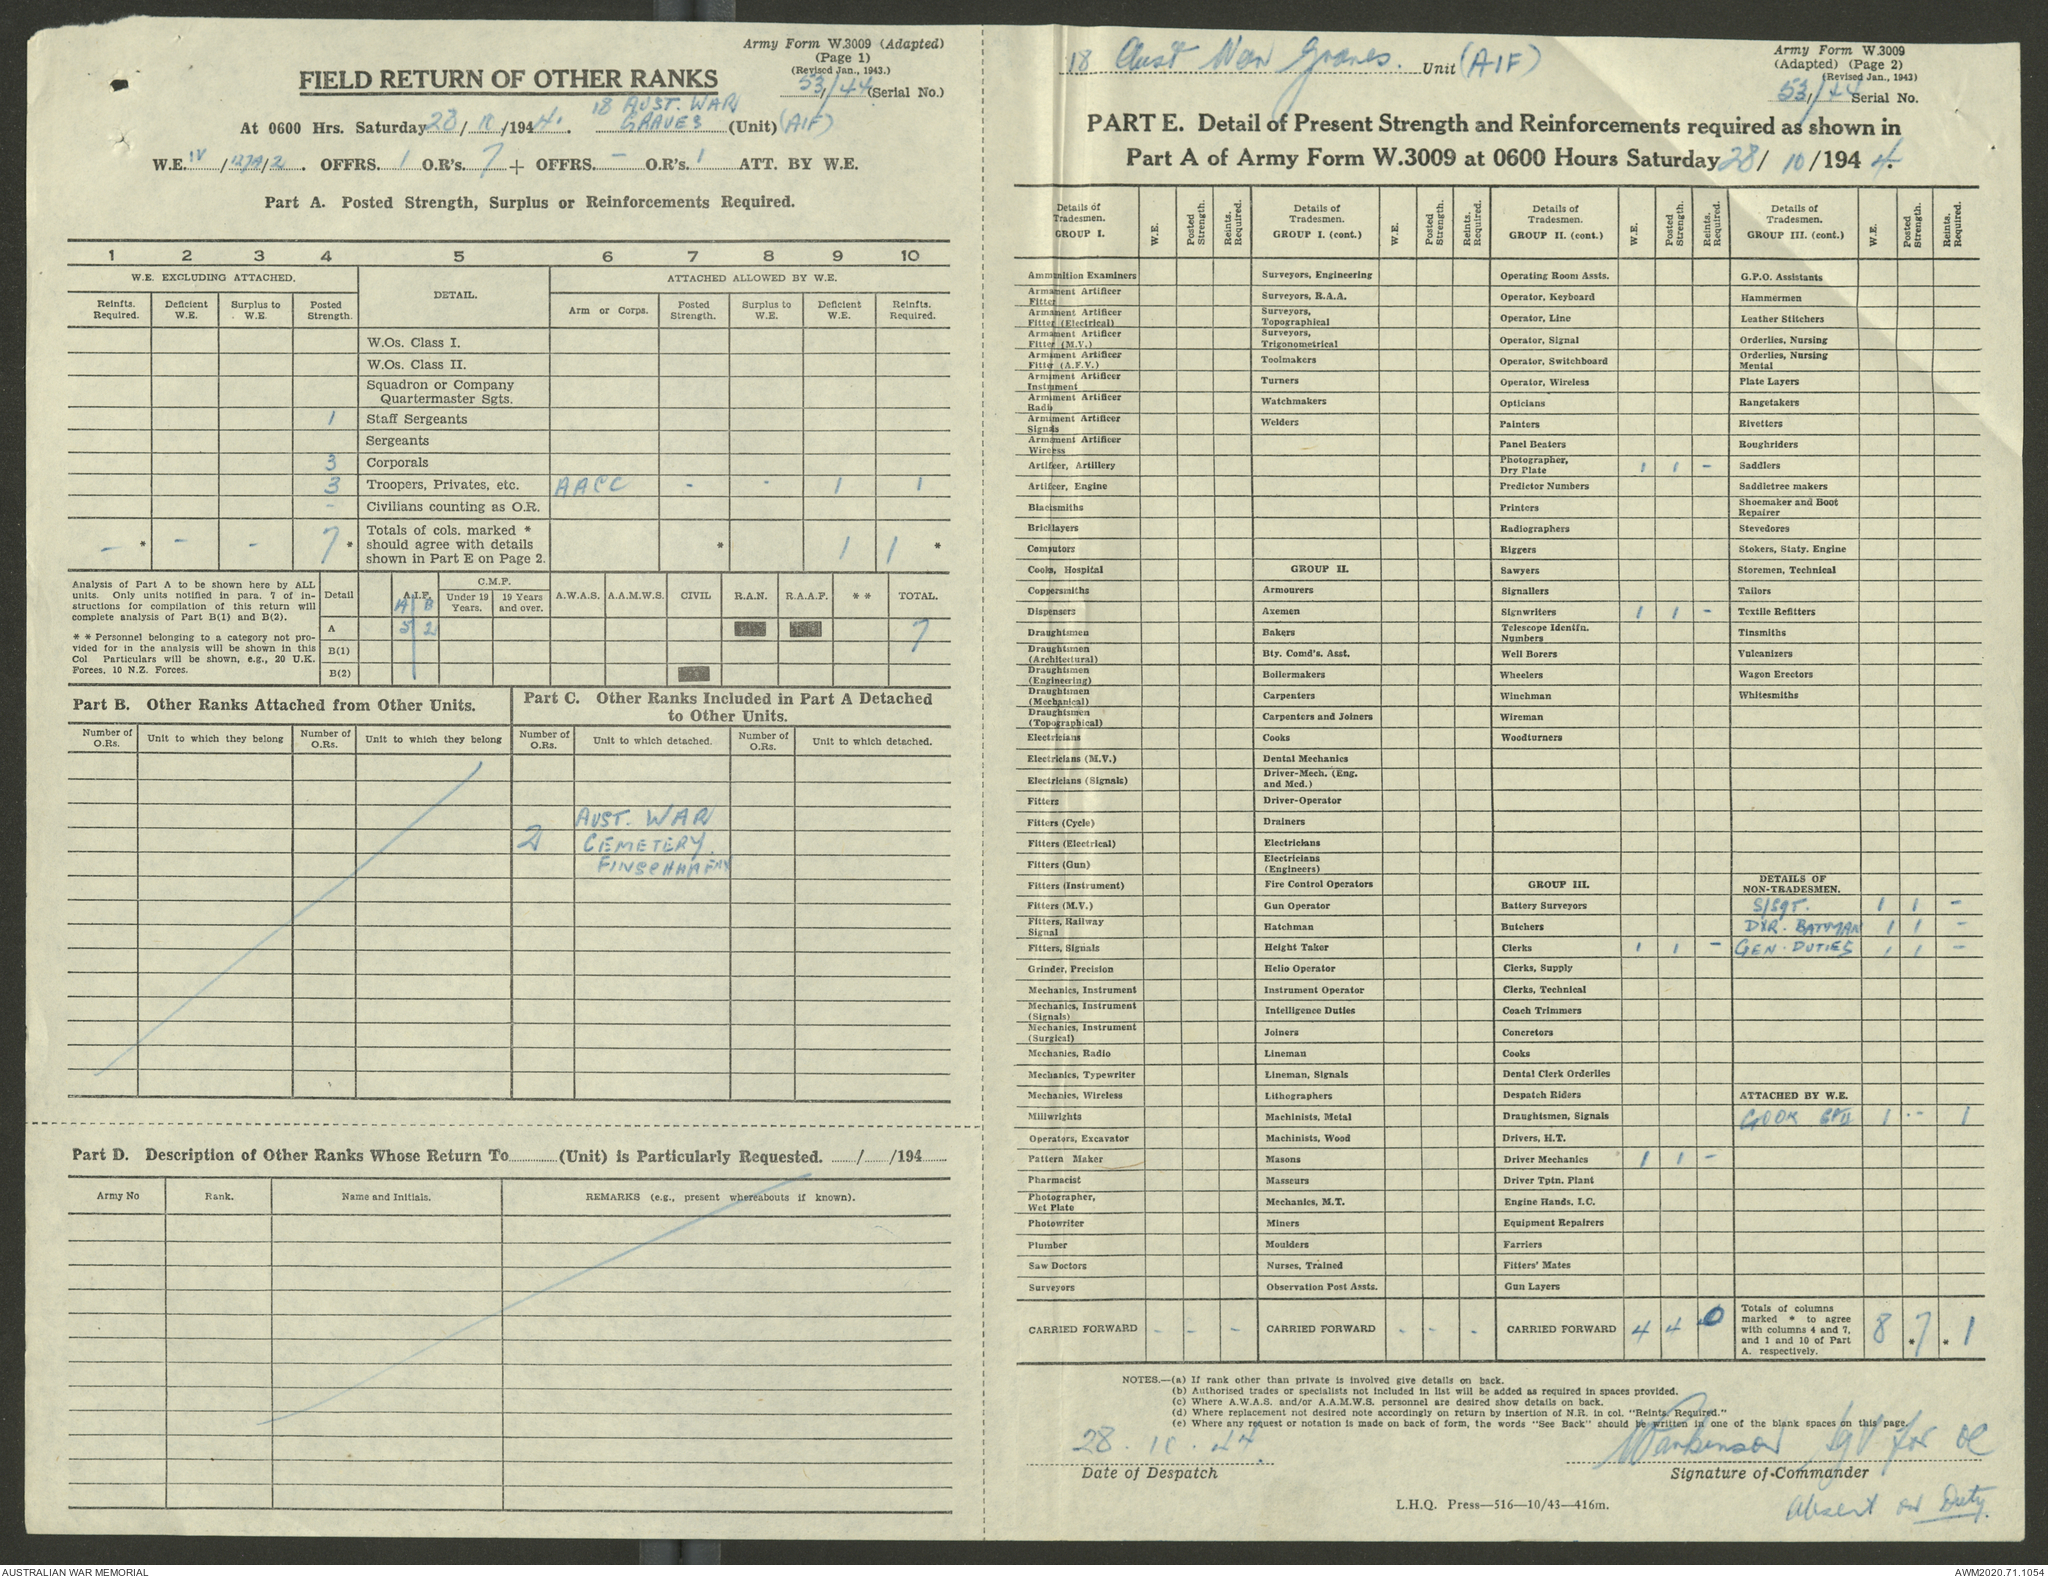 Army Form W.3009 (Adapted)
(Page 1)
(Revised Jan., 1943.)
53/44 (Serial No.)
FIELD RETURN OF OTHER RANKS
At 0600 Hrs. Saturday 28/10/1944. 18 AUST. WAR GRAVES (Unit) (AIF)
W.E. IV/127A/2. OFFRS. 1 O.R's. 7 + OFFRS. - O.R's. 1 ATT. BY W.E.
Part A. Posted Strength, Surplus or Reinforcements Required.
1 2 3 4 5 6 7 8 9 10
W.E. EXCLUDING ATTACHED. DETAIL. ATTACHED ALLOWED BY W.E.
Reinfts. Required. Deficient W.E. Surplus to W.E. Posted Strength. Arm or Corps. Posted Strength. Surplus to W.E. Deficient W.E. Reinfts. Required.
W.Os. Class I.
W.Os. Class II.
Squadron or Company Quartermaster Sgts.
1 Staff Sergeants
Sergeants
3 Corporals
3 Troopers, Privates, etc. AACC - - 1 1
- Civilians counting as O.R.
- * - - 7 * Totals of cols. marked * should agree with details shown in Part E on Page 2. * 1 1 *
Analysis of Part A to be shown here by ALL units. Only units notified in para. 7 of instructions for compilation of this return will complete analysis of Part B(1) and B(2).
* * Personnel belonging to a category not provided for in the analysis will be shown in this Col Particulars will be shown, e.g., 20 U.K. Forces, 10 N.Z. Forces.
Detail A.I.F. C.M.F. Under 19 Years. 19 Years and over. A.W.A.S. A.A.M.W.S. CIVIL R.A.N. R.A.A.F. * * TOTAL.
A B
A 5 2 7
B(1)
B(2)
Part B. Other Ranks Attached from Other Units.
Number of O.Rs. Unit to which they belong Number of O.Rs. Unit to which they belong
Part C. Other Ranks Included in Part A Detached to Other Units.
Number of O.Rs. Unit to which detached. Number of O.Rs. Unit to which detached.
2 AUST. WAR
CEMETERY.
FINSCHHAFEN
Part D. Description of Other Ranks Whose Return To (Unit) is Particularly Requested. / /194
Army No Rank. Name and Initials. REMARKS (e.g., present whereabouts if known).
18 Aust War Graves. Unit (AIF)
Army Form W.3009
(Adapted) (Page 2)
(Revised Jan., 1943)
53/44 Serial No.
PART E. Detail of Present Strength and Reinforcements required as shown in
Part A of Army Form W.3009 at 0600 Hours Saturday 28/10/1944.
Details of Tradesmen. GROUP I. W.E. Posted Strength. Reints. Required.
Ammunition Examiners
Armament Artificer Fitter
Armament Artificer Fitter (Electrical)
Armament Artificer Fitter (M.V.)
Armament Artificer Fitter (A.F.V.)
Armament Artificer Instrument
Armament Artificer Radio
Armament Artificer Signals
Armament Artificer Wireless
Artificer, Artillery
Artificer, Engine
Blacksmiths
Bricklayers
Computors
Cooks, Hospital
Coppersmiths
Dispensers
Draughtsmen
Draughtsmen (Architectural)
Draughtsmen (Engineering)
Draughtsmen (Mechanical)
Draughtsmen (Topographical)
Electricians
Electricians (M.V.)
Electricians (Signals)
Fitters
Fitters (Cycle)
Fitters (Electrical)
Fitters (Gun)
Fitters (Instrument)
Fitters (M.V.)
Fitters, Railway Signal
Fitters, Signals
Grinder, Precision
Mechanics, Instrument
Mechanics, Instrument (Signals)
Mechanics, Instrument (Surgical)
Mechanics, Radio
Mechanics, Typewriter
Mechanics, Wireless
Millwrights
Operators, Excavator
Pattern Maker
Pharmacist
Photographer, Wet Plate
Photowriter
Plumber
Saw Doctors
Surveyors
CARRIED FORWARD - - -
Details of Tradesmen. GROUP I. (cont.) W.E. Posted Strength. Reints. Required.
Surveyors, Engineering
Surveyors, R.A.A.
Surveyors, Topographical
Surveyors, Trigonometrical
Toolmakers
Turners
Watchmakers
Welders
GROUP II.
Armourers
Axemen
Bakers
Bty. Comd's. Asst.
Boilermakers
Carpenters
Carpenters and Joiners
Cooks
Dental Mechanics
Driver-Mech. (Eng. and Med.)
Driver-Operator
Drainers
Electricians
Electricians (Engineers)
Fire Control Operators
Gun Operator
Hatchman
Height Taker
Helio Operator
Instrument Operator
Intelligence Duties
Joiners
Lineman
Lineman, Signals
Lithographers
Machinists, Metal
Machinists, Wood
Masons
Masseurs
Mechanics, M.T.
Miners
Moulders
Nurses, Trained
Observation Post Assts.
CARRIED FORWARD - - -
Details of Tradesmen. GROUP II. (cont.) W.E. Posted Strength. Reints. Required.
Operating Room Assts.
Operator, Keyboard
Operator, Line
Operator, Signal
Operator, Switchboard
Operator, Wireless
Opticians
Painters
Panel Beaters
Photographer, Dry Plate 1 1 -
Predictor Numbers
Printers
Radiographers
Riggers
Sawyers
Signallers
Signwriters 1 1 -
Telescope Identfn. Numbers
Well Borers
Wheelers
Winchman
Wireman
Woodturners
GROUP III.
Battery Surveyors
Butchers
Clerks 1 1 -
Clerks, Supply
Clerks, Technical
Coach Trimmers
Concretors
Cooks
Dental Clerk Orderlies
Despatch Riders
Draughtsmen, Signals
Drivers, H.T.
Driver Mechanics 1 1 -
Driver Tptn. Plant
Engine Hands, I.C.
Equipment Repairers
Farriers
Fitters' Mates
Gun Layers
CARRIED FORWARD 4 4 0
Details of Tradesmen. GROUP III. (cont.) W.E. Posted Strength. Reints. Required.
G.P.O. Assistants
Hammermen
Leather Stitchers
Orderlies, Nursing
Orderlies, Nursing Mental
Plate Layers
Rangetakers
Rivetters
Roughriders
Saddlers
Saddletree makers
Shoemaker and Boot Repairer
Stevedores
Stokers, Staty. Engine
Storemen, Technical
Tailors
Textile Refitters
Tinsmiths
Vulcanizers
Wagon Erectors
Whitesmiths
DETAILS OF NON-TRADESMEN.
S/SGT. 1 1 -
DVR. BATMAN 1 1 -
GEN. DUTIES 1 1 -
ATTACHED BY W.E.
COOK GP II 1 - 1
Totals of columns marked * to agree with columns 4 and 7, and 1 and 10 of Part A. respectively. 8 * 7 * 1
NOTES.—(a) If rank other than private is involved give details on back.
(b) Authorised trades or specialists not included in list will be added as required in spaces provided.
(c) Where A.W.A.S. and/or A.A.M.W.S. personnel are desired show details on back.
(d) Where replacement not desired note accordingly on return by insertion of N.R. in col. "Reints. Required."
(e) Where any request or notation is made on back of form, the words "See Back" should be written in one of the blank spaces on this page.
28 . 10 . 44.
Date of Despatch
Parkinson for OC
Signature of Commander
Absent on Duty.
L.H.Q. Press—516—10/43—416m.
AUSTRALIAN WAR MEMORIAL
AWM2020.71.1054